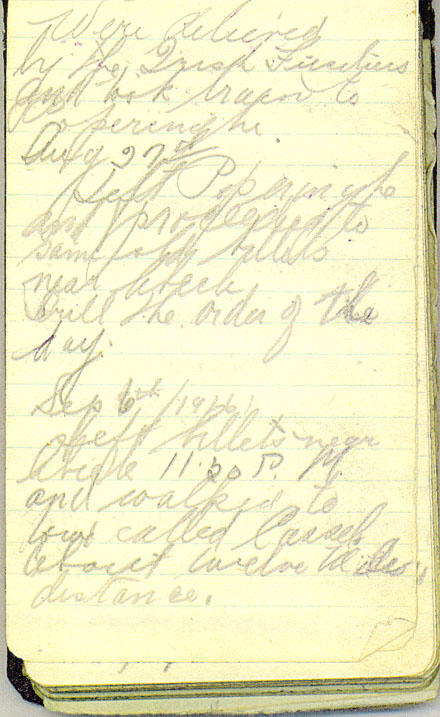 Were relieved
by the Irish Fusiliers
and took train to
Poperinghe
Aug 27th
Left Poperinghe
and proceeded to
same old billets
near
Drill the order of the
day.
Sep 6th /1916/
Left billets near
11.30 P. M.
and walked to
town called Cassel
about twelve Miles
distance.